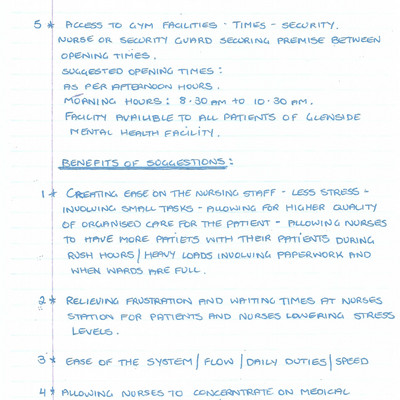 5 * ACCESS TO GYM FACILITIES · TIMES - SECURITY.
NURSE OR SECURITY GUARD SECURING PREMISE BETWEEN
OPENING TIMES.
SUGGESTED OPENING TIMES:
AS PER AFTERNOON HOURS.
MORNING HOURS: 8·30 AM TO 10·30 AM.
FACILITY AVAILIBLE TO ALL PATIENTS OF GLENSIDE
MENTAL HEALTH FACILITY.
BENEFITS OF SUGGESTIONS:
1 * CREATING EASE ON THE NURSING STAFF - LESS STRESS -
INVOLVING SMALL TASKS - ALLOWING FOR HIGHER QUALITY
OF ORGANISED CARE FOR THE PATIENT - ALLOWING NURSES
TO HAVE MORE PATIETS WITH THEIR PATIENTS DURING
RUSH HOURS / HEAVY LOADS INVOLVING PAPERWORK AND
WHEN WARDS ARE FULL.
2 * RELIEVING FRUSTRATION AND WAITING TIMES AT NURSES
STATION FOR PATIENTS AND NURSES LOWERING STRESS
LEVELS.
3 * EASE OF THE SYSTEM / FLOW / DAILY DUTIES / SPEED
4 * ALLOWING NURSES TO CONCERNTRATE ON MEDICAL